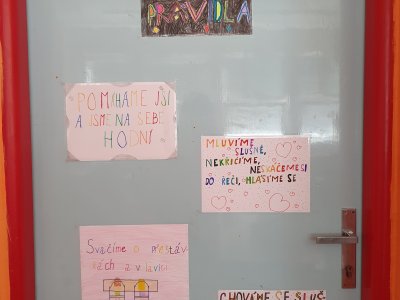 PRAVIDLA
POMÁHÁME SI
A JSME NA SEBE
HODNÍ
MLUVÍME
SLUŠNĚ,
NEKŘIČÍME,
NESKÁČEME SI
DO ŘEČI, HLÁSÍME SE
Svačíme o přestáv-
kách a v lavici
CHOVÁME SE SLUŠ-